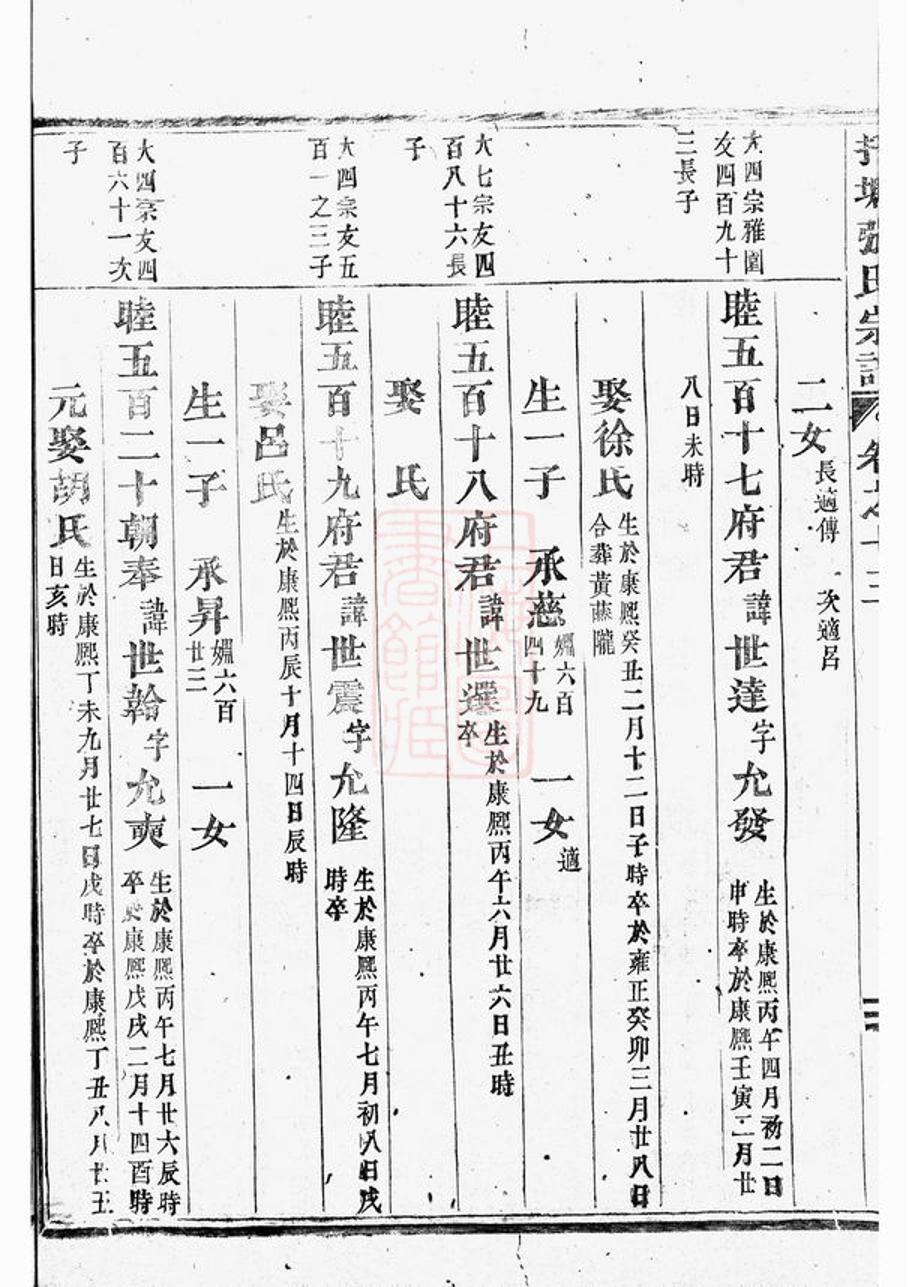 張氏宗譜 卷之十三
二
二女 長適傅 次適呂
大四宗雅園
友四百九十
三長子
睦五百十七府君諱世達字允發 生於康熙丙午四月初二日
申時卒於康熙壬寅二月廿
八日未時
娶徐氏 生於康熙癸丑二月十二日子時卒於雍正癸卯三月廿八日
合葬黃蘇隴
生一子 承慈 嫺六百
四十九
一女 適
大七宗友四
百八十六長
子
睦五百十八府君諱世選 生於康熙丙午六月廿六日丑時
卒
娶 氏
大四宗友五
百一之三子
睦五百十九府君諱世震字允隆 生於康熙丙午七月初八日戌
時卒
娶呂氏 生於康熙丙辰十月十四日辰時
生一子 承昇 嫺六百
廿三
一女
大四宗友四
百六十一次
子
睦五百二十朝奉諱世翰字允奭 生於康熙丙午七月廿六辰時
卒於康熙戊戌二月十四酉時
元娶胡氏 生於康熙丁未九月廿七日戌時卒於康熙丁丑八月廿五
日亥時